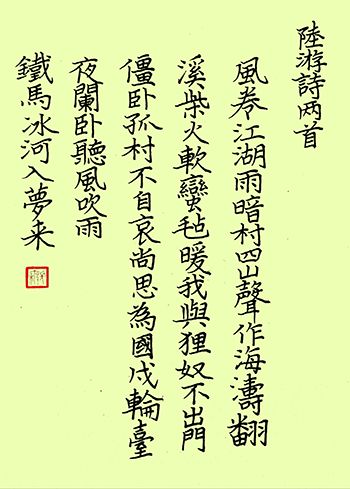 陸游詩两首
風卷江湖雨暗村四山聲作海濤翻
溪柴火軟蠻毡暖我與狸奴不出門
僵卧孤村不自哀尚思為國戍輪臺
夜闌卧聽風吹雨
鐵馬冰河入夢来